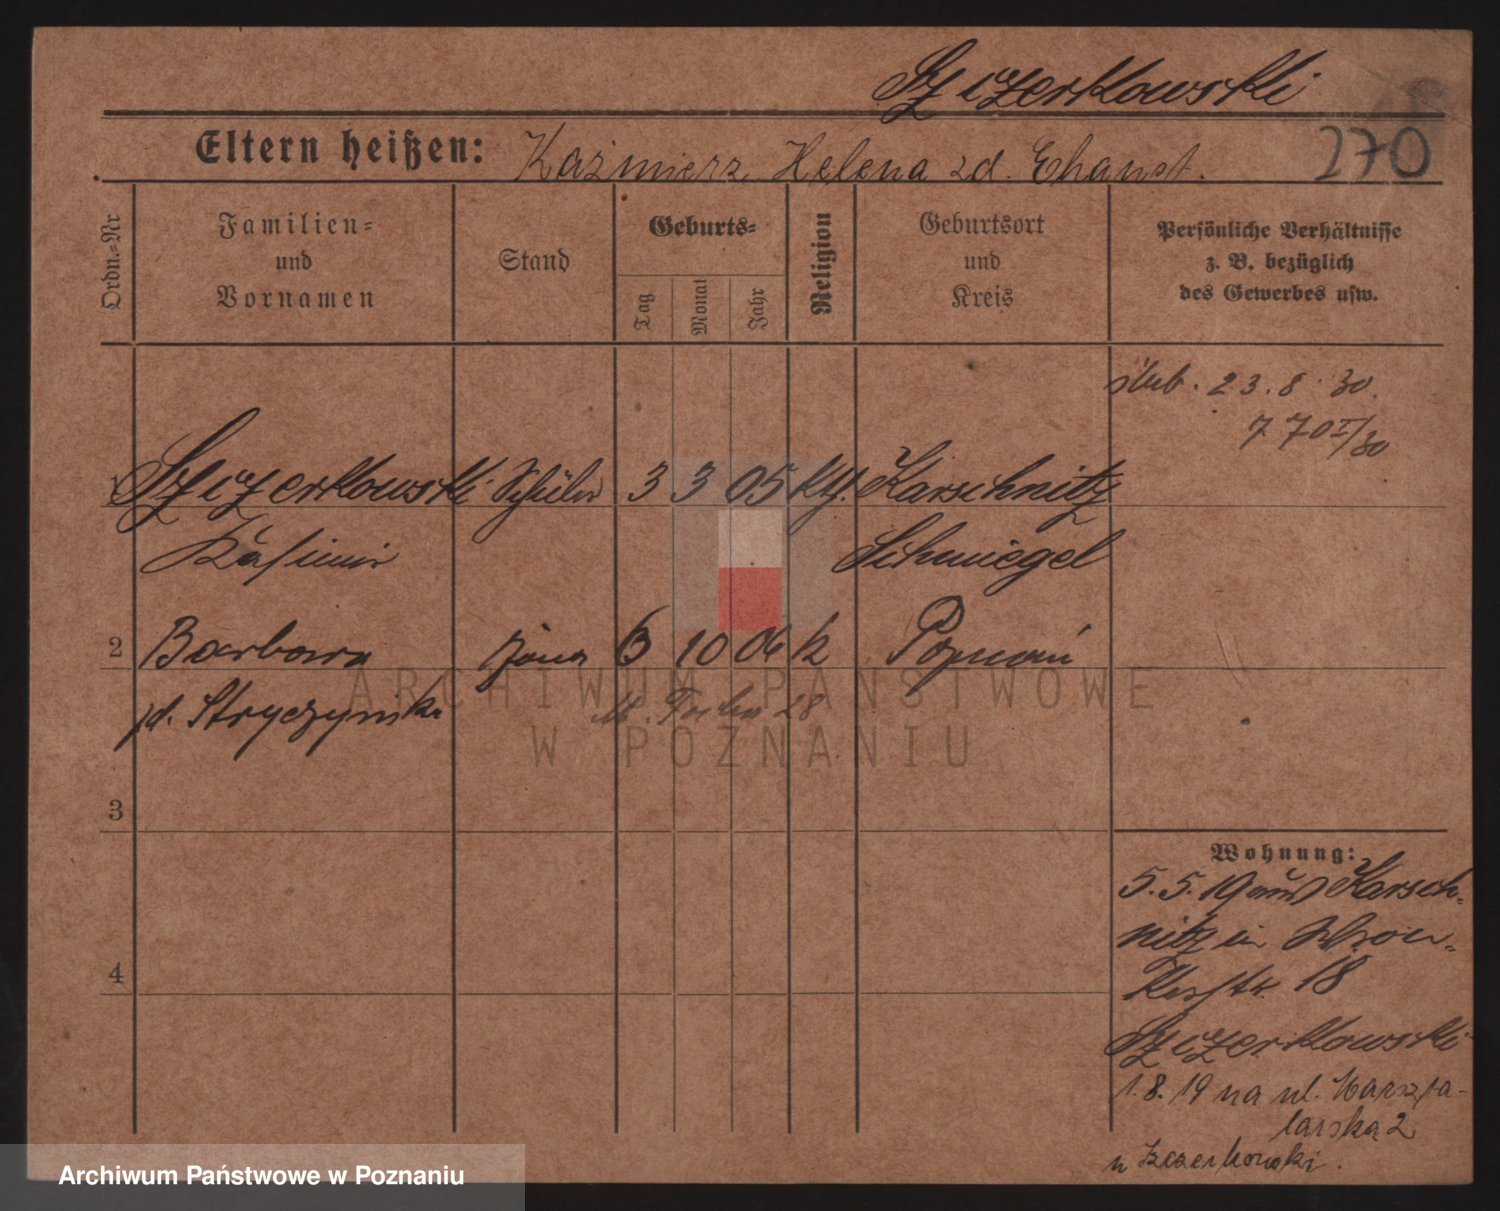 Szczerkowski
Eltern heißen: Kaźmierz, Helena zd. Ehanst. 270
Ordn.-Nr
Familien-
und
Vornamen
Stand
Geburts-
Tag
Monat
Jahr
Religion
Geburtsort
und
Kreis
Persönliche Verhältnisse
z. B. bezüglich
des Gewerbes usw.
ślub. 23.8.30.
770 I/30
1 Szczerkowski Schüler 3 3 05 kth. Karschnitz
Kasimir Schmiegel
2 Barbara żona 6 10 06 k Poznań
zd. Stryczyński
28
3
4
Wohnung:
5.5.19 aus Karsch-
nitz in
18
Szczerkowski
1.8.19 na ul. Marszta-
larską 2
u Szczerkowski.
ARCHIWUM PAŃSTWOWE
W POZNANIU
Archiwum Państwowe w Poznaniu